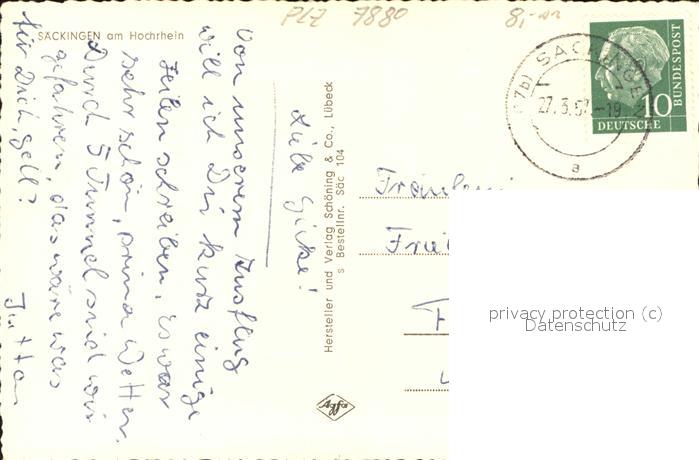 SÄCKINGEN am Hochrhein
PLZ 7880
8,-
Liebe
Von unserem Ausflug
will ich Dir kurz einige
Zeilen schreiben. Es war
sehr schön, prima Wetter.
Durch 5 Tunnel sind wir
gefahren, das wäre was
für Dich, gell?
Jutta
Hersteller und Verlag Schöning & Co., Lübeck
s Bestellnr. Säc 104
Agfa
SÄCKINGEN
27.3.57.-19
a
10
DEUTSCHE
BUNDESPOST
Fräulein
privacy protection (c)
Datenschutz